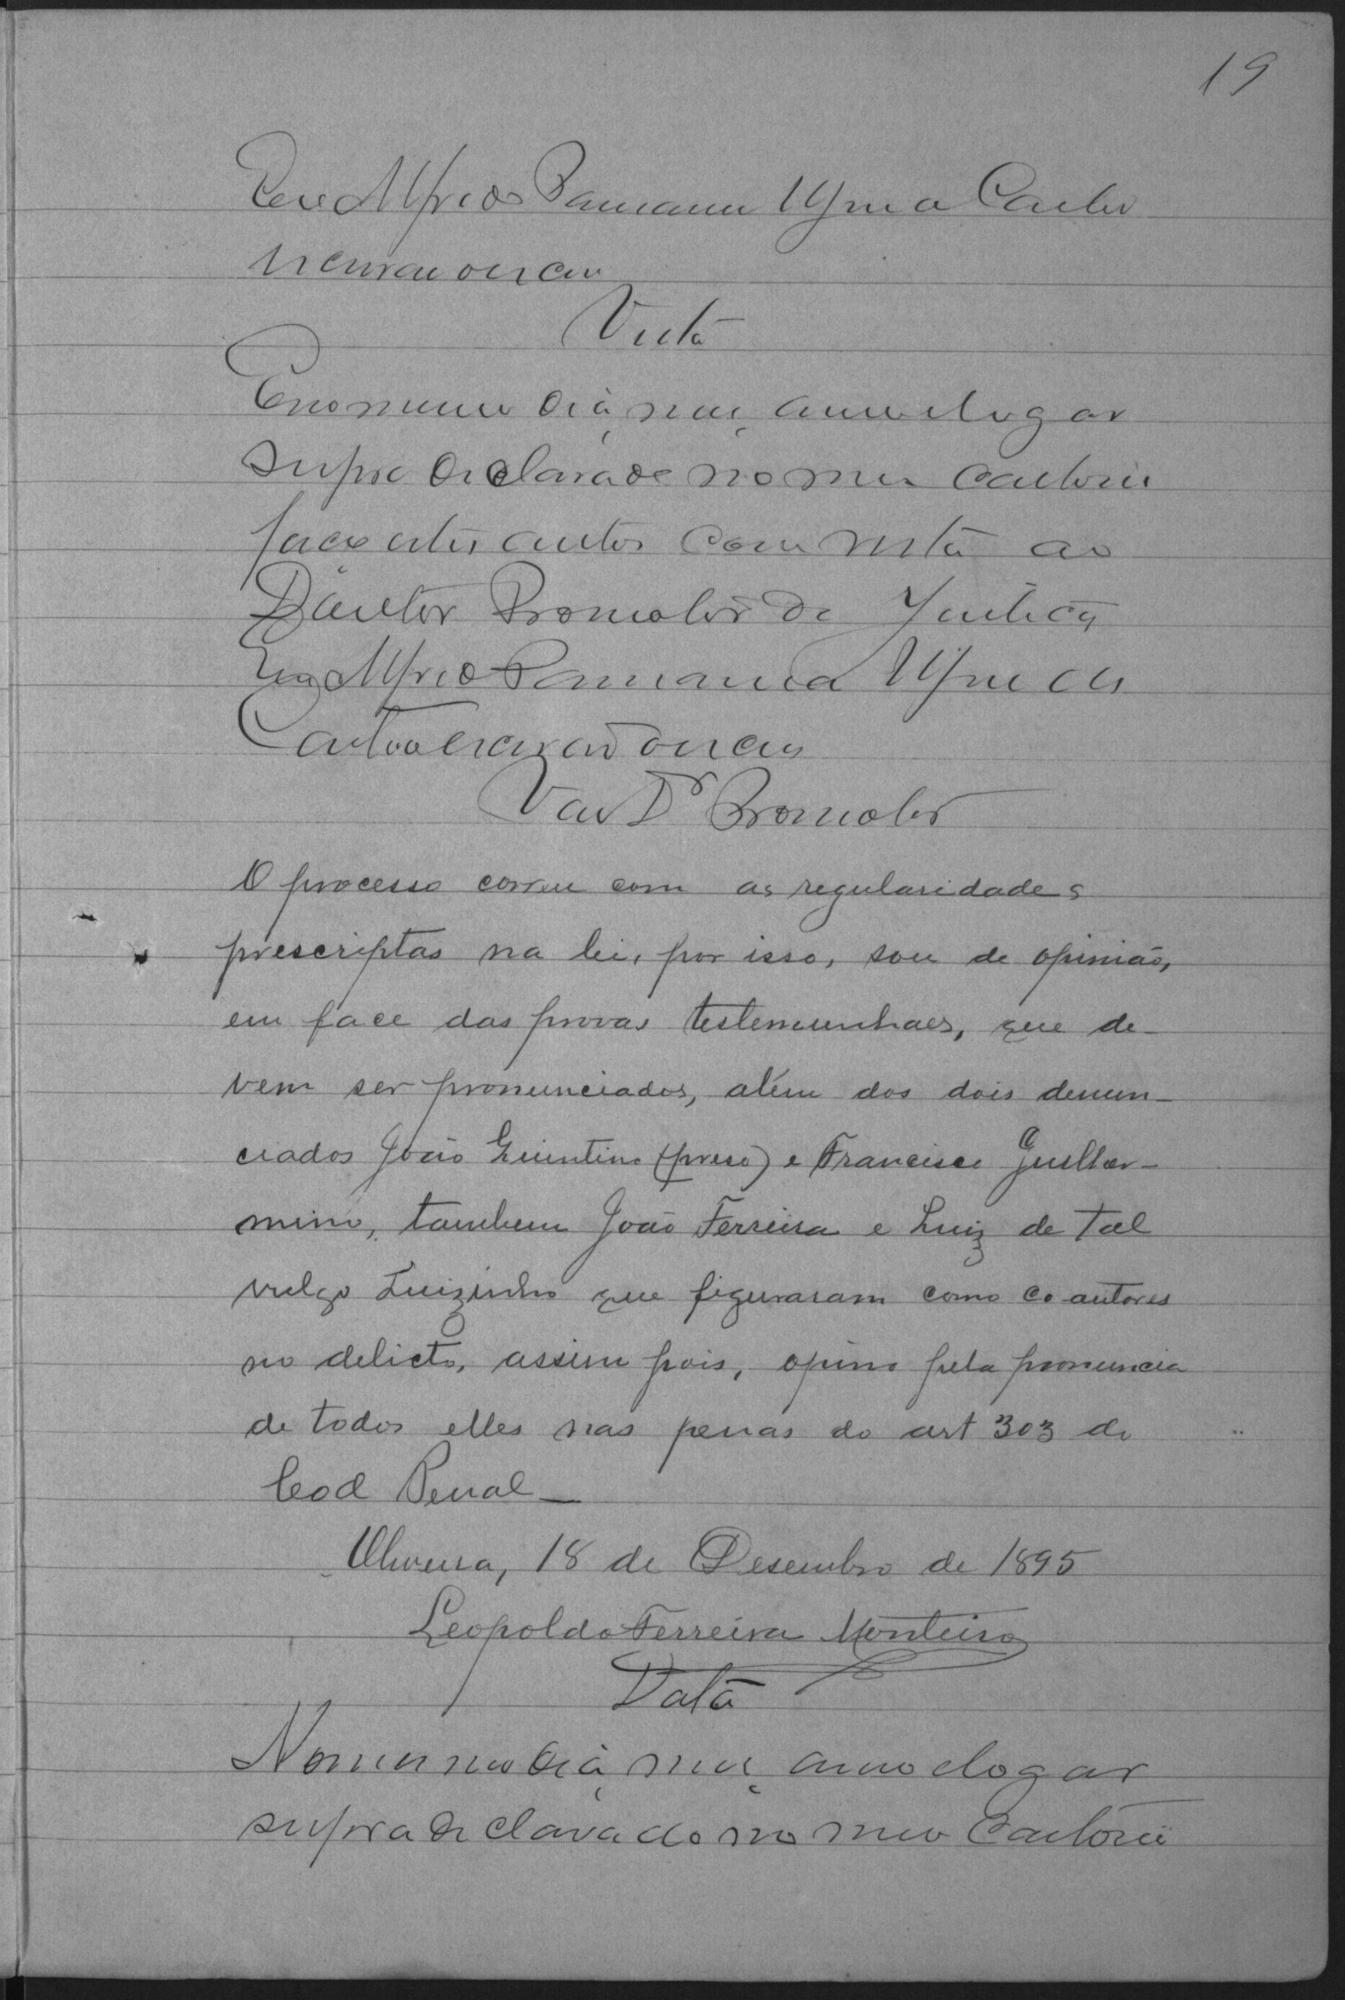 19
Eu Alfredo
escrivão escrevi
Vista
E no mesmo dia, mez, anno e logar
supra declarado no meu cartorio
faço estes autos com vista ao
Doutor Promotor de Justiça
Eu Alfredo
Castro escrivão escrevi
V ao Dr Promotor
O processo correu com as regularidades
prescriptas na lei, por isso, sou de opinião,
em face das provas testemunhaes, que de-
vem ser pronunciados, além dos dois denun-
ciados João Quintino (preso) e Francisco Guilher-
mino, tambem João Ferreira e Luiz de Tal
vulgo Luizinho que figuraram como co autores
no delicto, assim pois, opino pela pronuncia
de todos elles nas penas do art 303 do
Cod Penal—
Oliveira, 18 de Desembro de 1895
Leopoldo Ferreira Monteiro
Data
No mesmo dia, mez, anno e logar
supra declarado no meu Cartorio